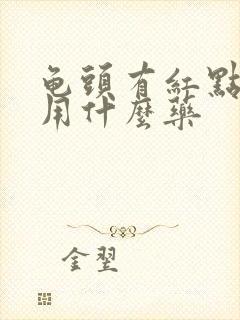 龟頭有紅點
用什麼藥
金翌